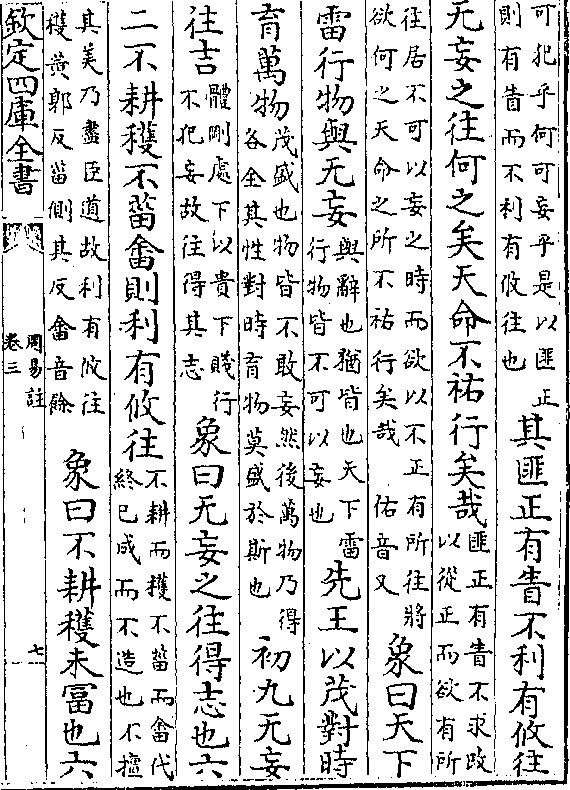 可犯乎何可妄乎是以匪正
則有眚而不利有攸往也
其匪正有眚不利有攸往
无妄之往何之矣天命不祐行矣哉
匪正有眚不求改
以從正而欲有所
往居不可以妄之時而欲以不正有所往將
欲何之天命之所不祐行矣哉　佑音又
象曰天下
雷行物與无妄
與辭也猶皆也天下雷
行物皆不可以妄也
先王以茂對時
育萬物
茂盛也物皆不敢妄然後萬物乃得
各全其性對時育物莫盛於斯也
初九无妄
往吉
體剛處下以貴下賤行
不犯妄故往得其志
象曰无妄之往得志也六
二不耕穫不菑畬則利有攸往
不耕而穫不菑而畬代
終已成而不造也不擅
其美乃盡臣道故利有攸往
穫黄郭反菑側其反畬音餘
象曰不耕穫未冨也六
欽定四庫全書
周易註
卷三
七